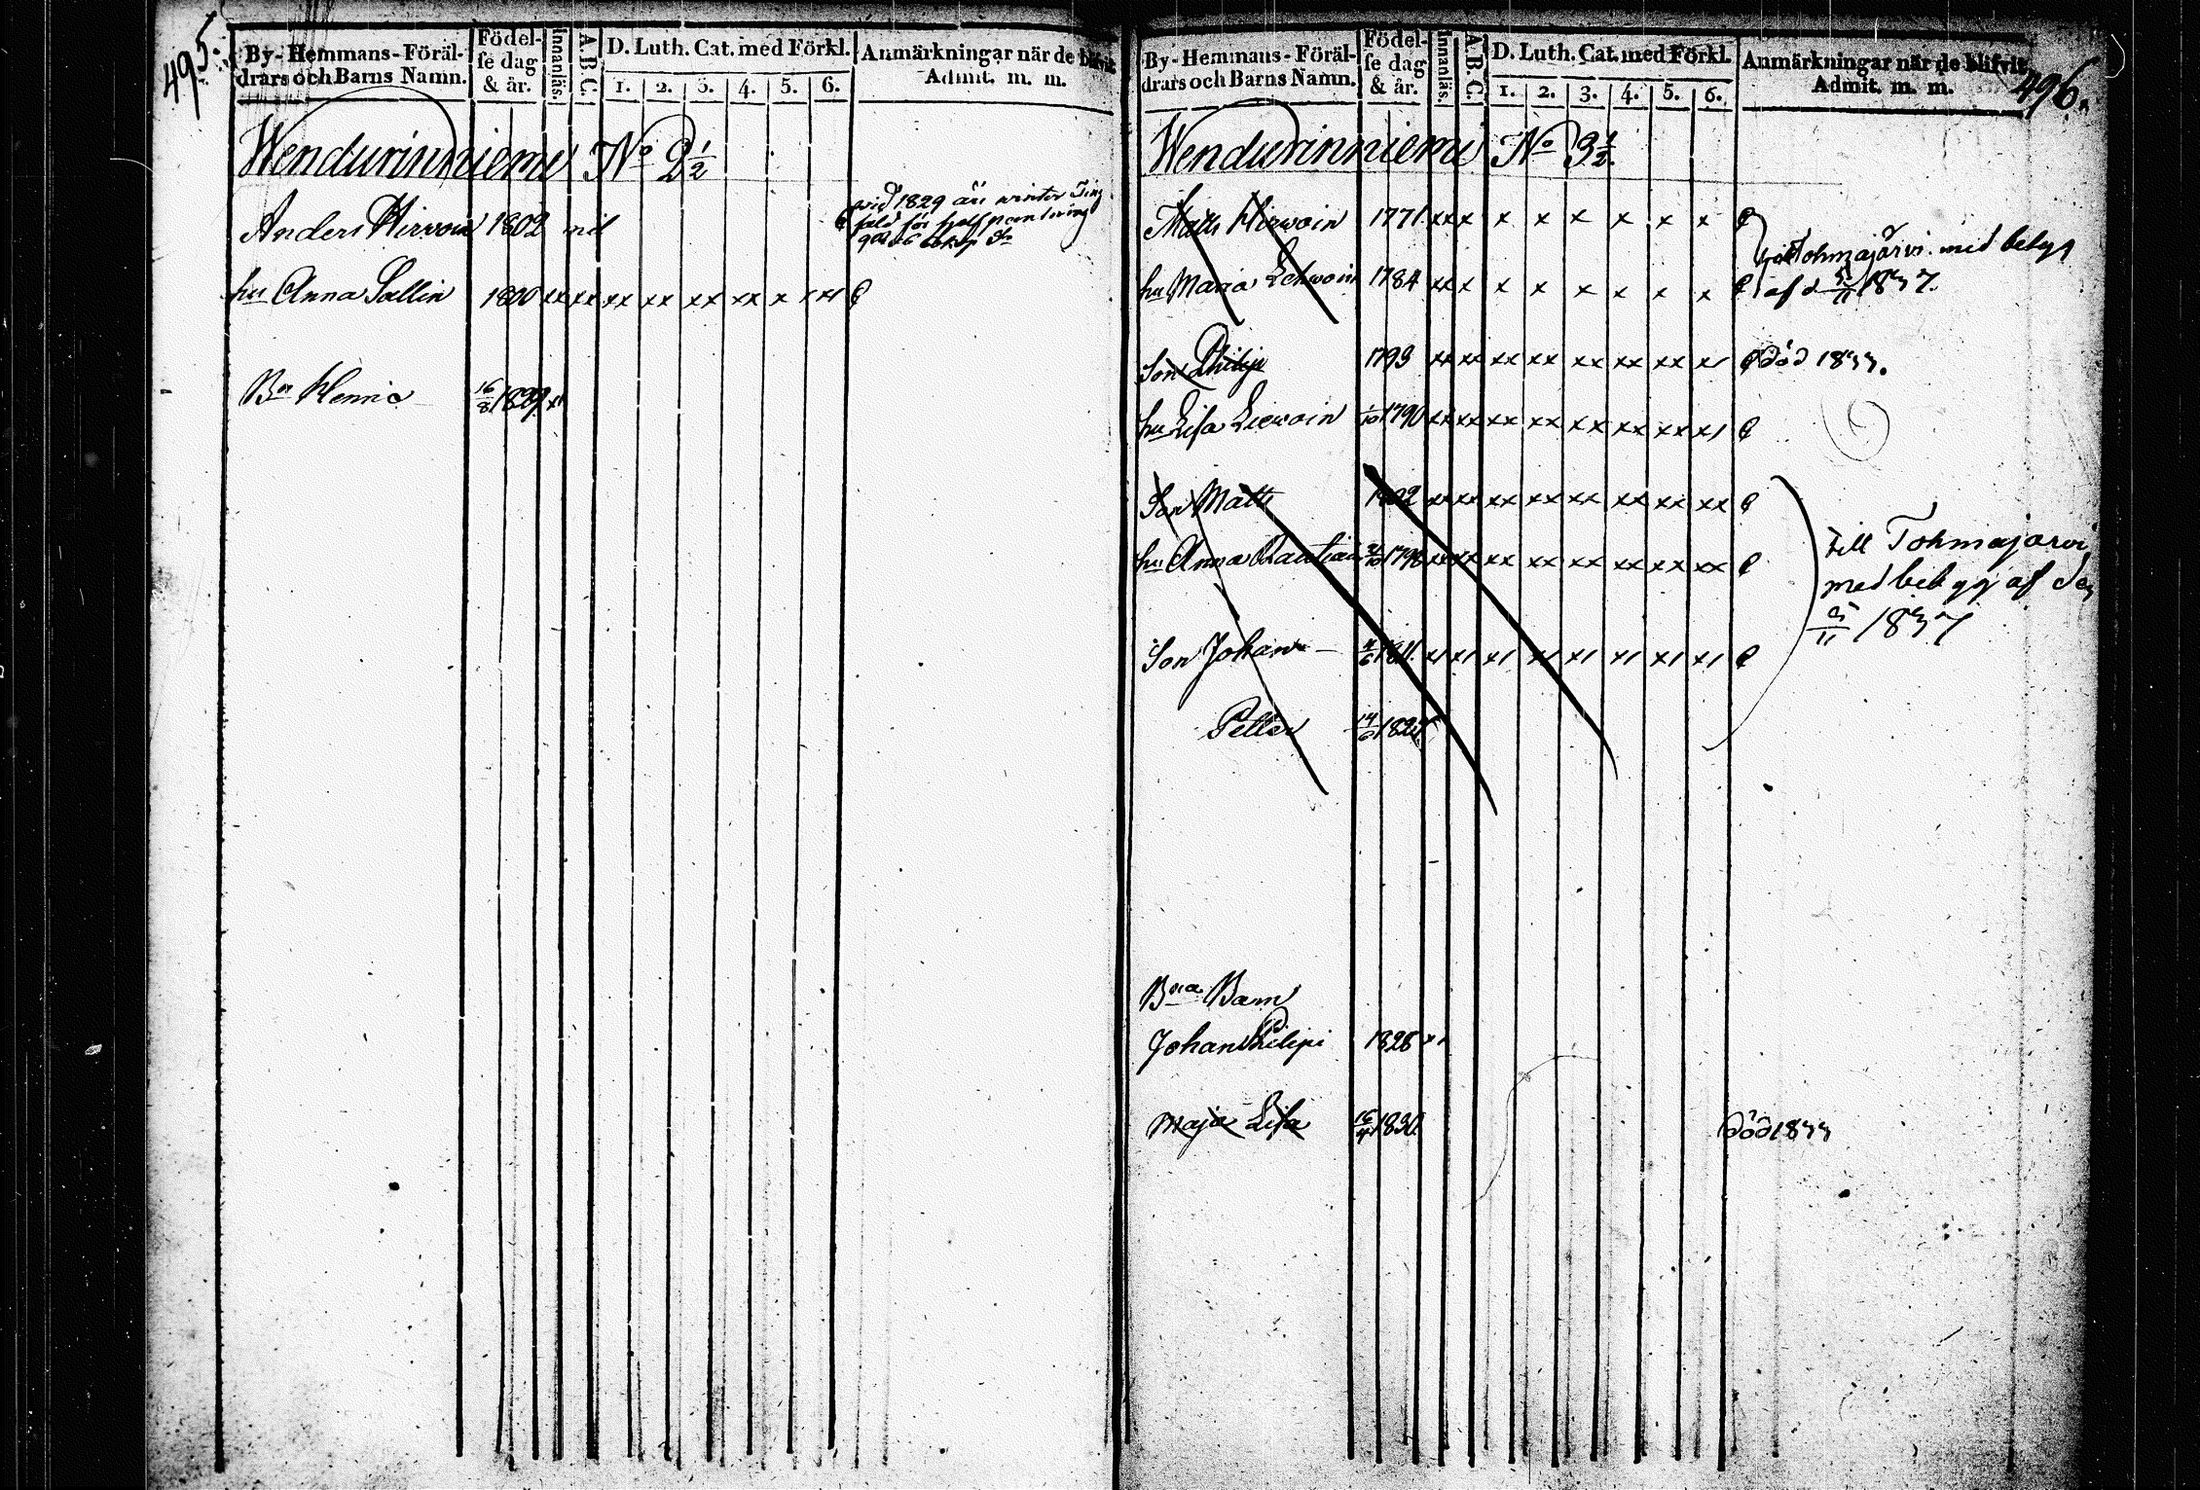 495.
By-Hemmans-Föräl-
drars och Barns Namn.
Födel-
se dag
& år.
Innanläs.
A.B.C.
D. Luth. Cat. med Förkl.
1. 2. 3. 4. 5. 6.
Anmärkningar när de blifvit
Admit. m. m.
Wendurinniemi No 2 1/2
Anders Hirvoin 1802 nil
vid 1829 års winter Ting
hu Anna Sallin 1800 xx xx xx xx xx xx x x xı
Bn Henric 16/8 1829 xı
496.
By-Hemmans-Föräl-
drars och Barns Namn.
Födel-
se dag
& år.
Innanläs.
A.B.C.
D. Luth. Cat. med Förkl.
1. 2. 3. 4. 5. 6.
Anmärkningar när de blifvit
Admit. m. m.
Wendurinniemi No 3 1/2.
Matts Hirvoin 1771 xx x x x x x x x
till Tohmajärvi med betyg
hu Maria Lehwoin 1784 xx x x x x x x x
af d 5/11 1837.
Son Philip 1793 xx xx xx xx xx xx xx xı död 1833.
hu Lisa Liewoin 1/10 1790 xx xx xx xx xx xx xx xı
Son Matts 1792 xx xx xx xx xx xx xx xx
till Tohmajärvi
hu Anna Rautiain 1798 xx xx xx xx xx xx xx xx
med betyg af den
5/11 1837
Son Johan – 4/6 1811. xı xı xı xı xı xı xı xı
Petter 14/6
Bna Barn
Johan Philipi 1828 xı
Maja Lisa 16/4 1830. död 1833